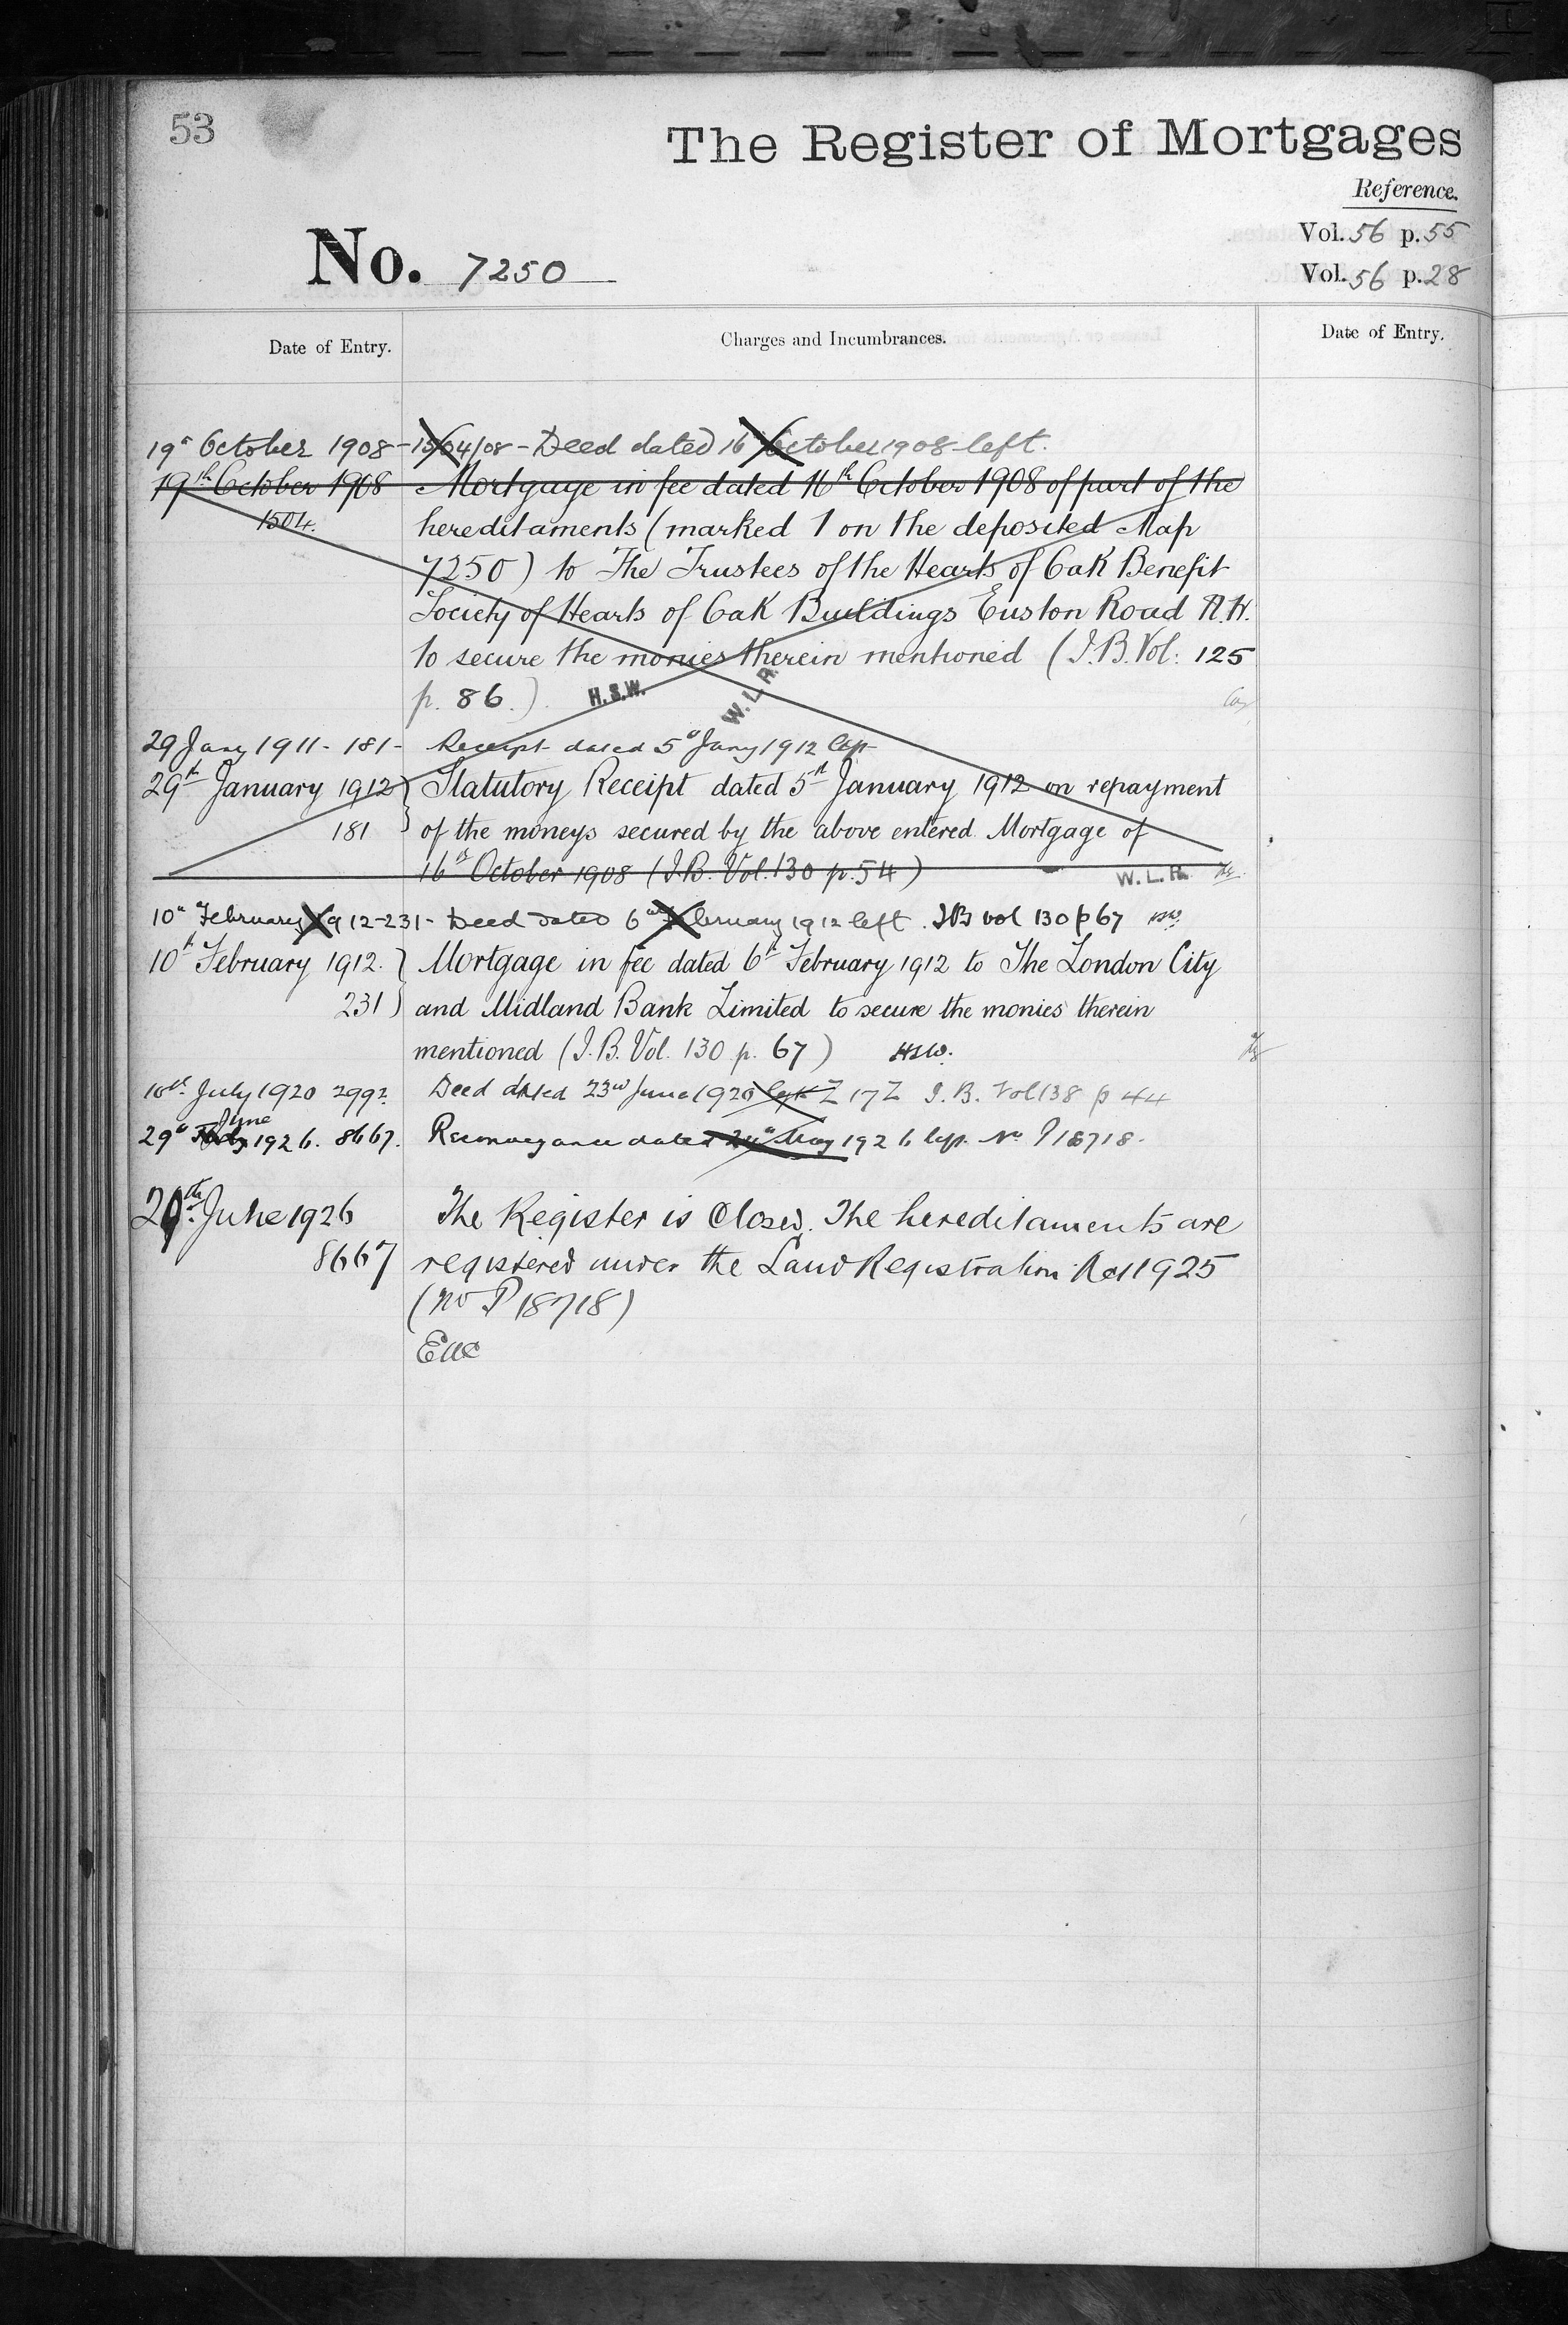 53
The Register of Mortgages
Reference.
Vol. 56 p. 55
No. 7250
Vol. 56 p. 28
Date of Entry.
Charges and Incumbrances.
Date of Entry.
19th October 1908 - 1504/08 - Deed dated 16 October 1908 left.
19th October 1908 Mortgage in fee dated 16th October 1908 of part of the
1504. hereditaments (marked 1 on the deposited Map
7250) to The Trustees of the Hearts of Oak Benefit
Society of Hearts of Oak Buildings Euston Road N.W.
to secure the monies therein mentioned (I.B. Vol: 125
p. 86.) H.S.W. W.L.R.
29 Jany 1911 - 181 - Receipt dated 5th Jany 1912 left
29th January 1912 Statutory Receipt dated 5th January 1912 on repayment
181 of the moneys secured by the above entered Mortgage of
16th October 1908 (I.B. Vol. 130 p. 54) W.L.R.
10th February 1912 - 231 - Deed dated 6th February 1912 left. IB vol 130 p 67
10th February 1912. Mortgage in fee dated 6th February 1912 to The London City
231 and Midland Bank Limited to secure the monies therein
mentioned (I.B. Vol. 130 p. 67) HSW.
July 1920 2992 Deed dated 23rd June 1920 left Z 17 Z I.B. Vol 138 p 44
June
29th 1926. 8667. Reconveyance dated 24th May 1926 left No P18718.
29th June 1926 The Register is Closed. The hereditaments are
8667 registered under the Land Registration Act 1925
(No P 18718)